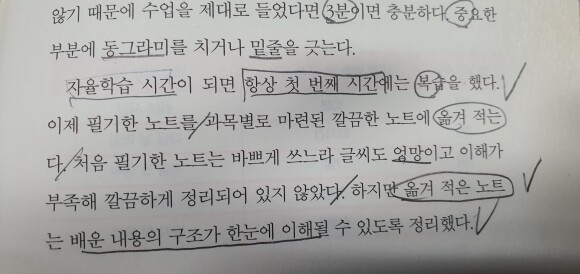 않기 때문에 수업을 제대로 들었다면 3분이면 충분하다. 중요한
부분에 동그라미를 치거나 밑줄을 긋는다.
자율학습 시간이 되면 항상 첫 번째 시간에는 복습을 했다.
이제 필기한 노트를 과목별로 마련된 깔끔한 노트에 옮겨 적는
다. 처음 필기한 노트는 바쁘게 쓰느라 글씨도 엉망이고 이해가
부족해 깔끔하게 정리되어 있지 않았다. 하지만 옮겨 적은 노트
는 배운 내용의 구조가 한눈에 이해될 수 있도록 정리했다.